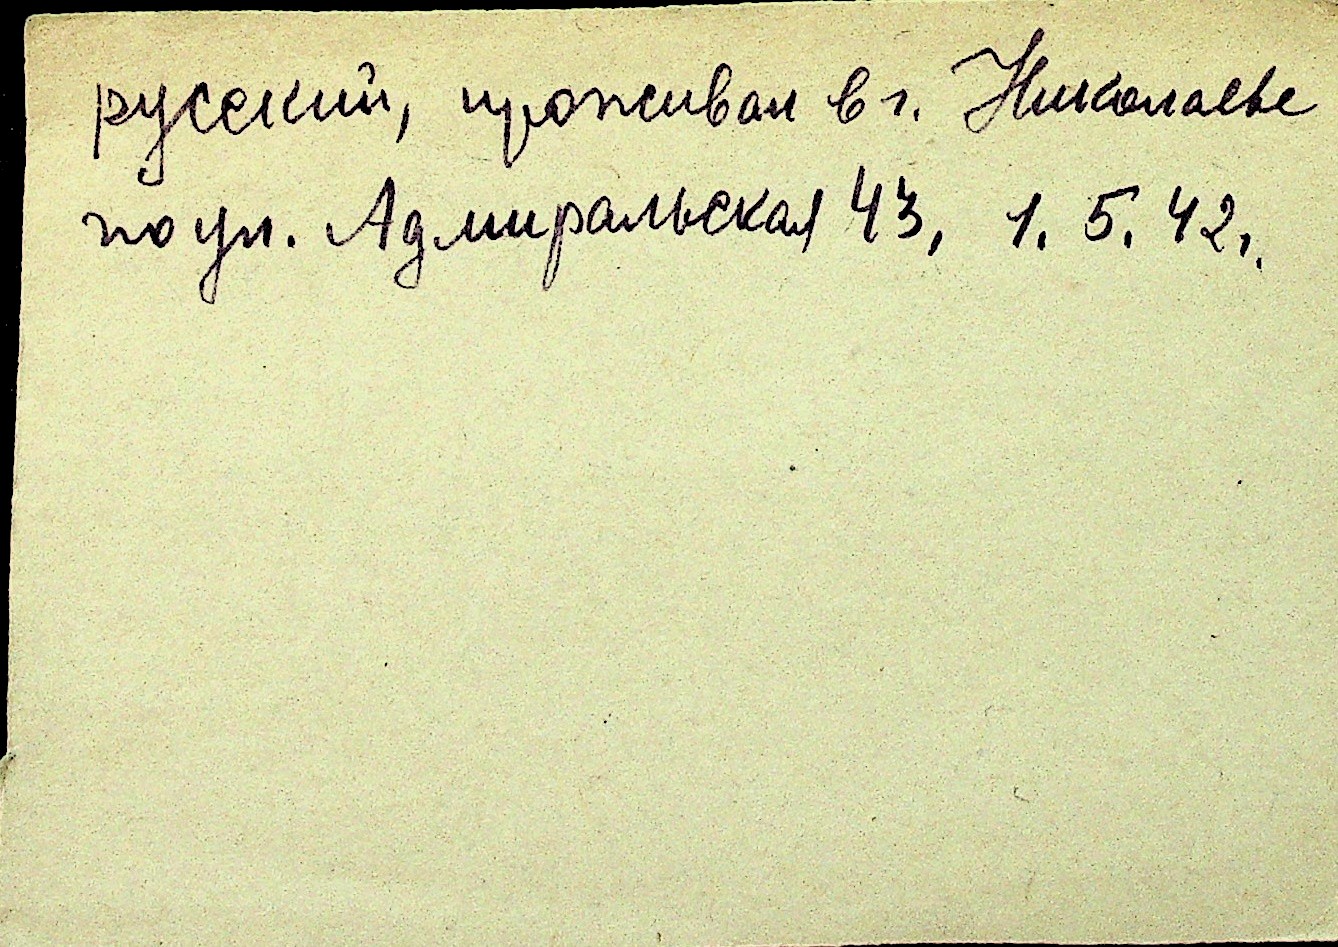 русский, проживал в г. Николаеве
по ул. Адмиральская 43, 1. 5. 42г.